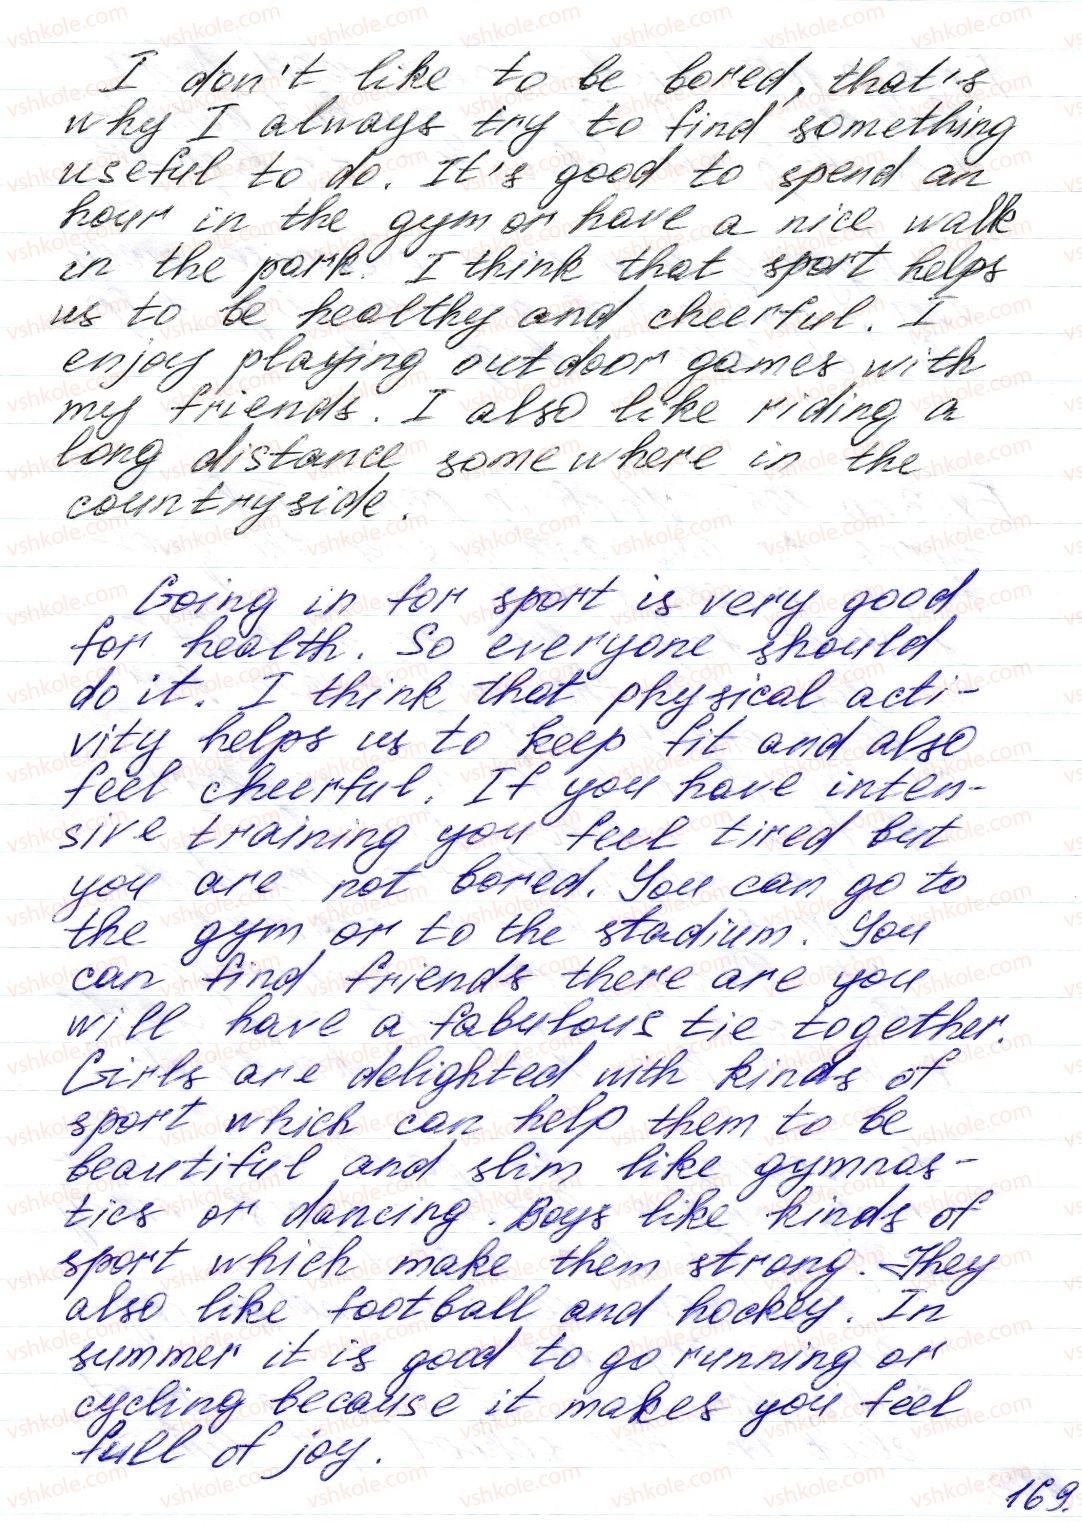 I don't like to be bored, that's
why I always try to find something
useful to do. It's good to spend an
hour in the gym or have a nice walk
in the park. I think that sport helps
us to be healthy and cheerful. I
enjoy playing outdoor games with
my friends. I also like riding a
long distance somewhere in the
countryside.
Going in for sport is very good
for health. So everyone should
do it. I think that physical acti-
vity helps us to keep fit and also
feel cheerful. If you have inten-
sive training you feel tired but
you are not bored. You can go to
the gym or to the stadium. You
can find friends there are you
will have a fabulous tie together.
Girls are delighted with kinds of
sport which can help them to be
beautiful and slim like gymnas-
tics or dancing. Boys like kinds of
sport which make them strong. They
also like football and hockey. In
summer it is good to go running or
cycling because it makes you feel
full of joy.
169.